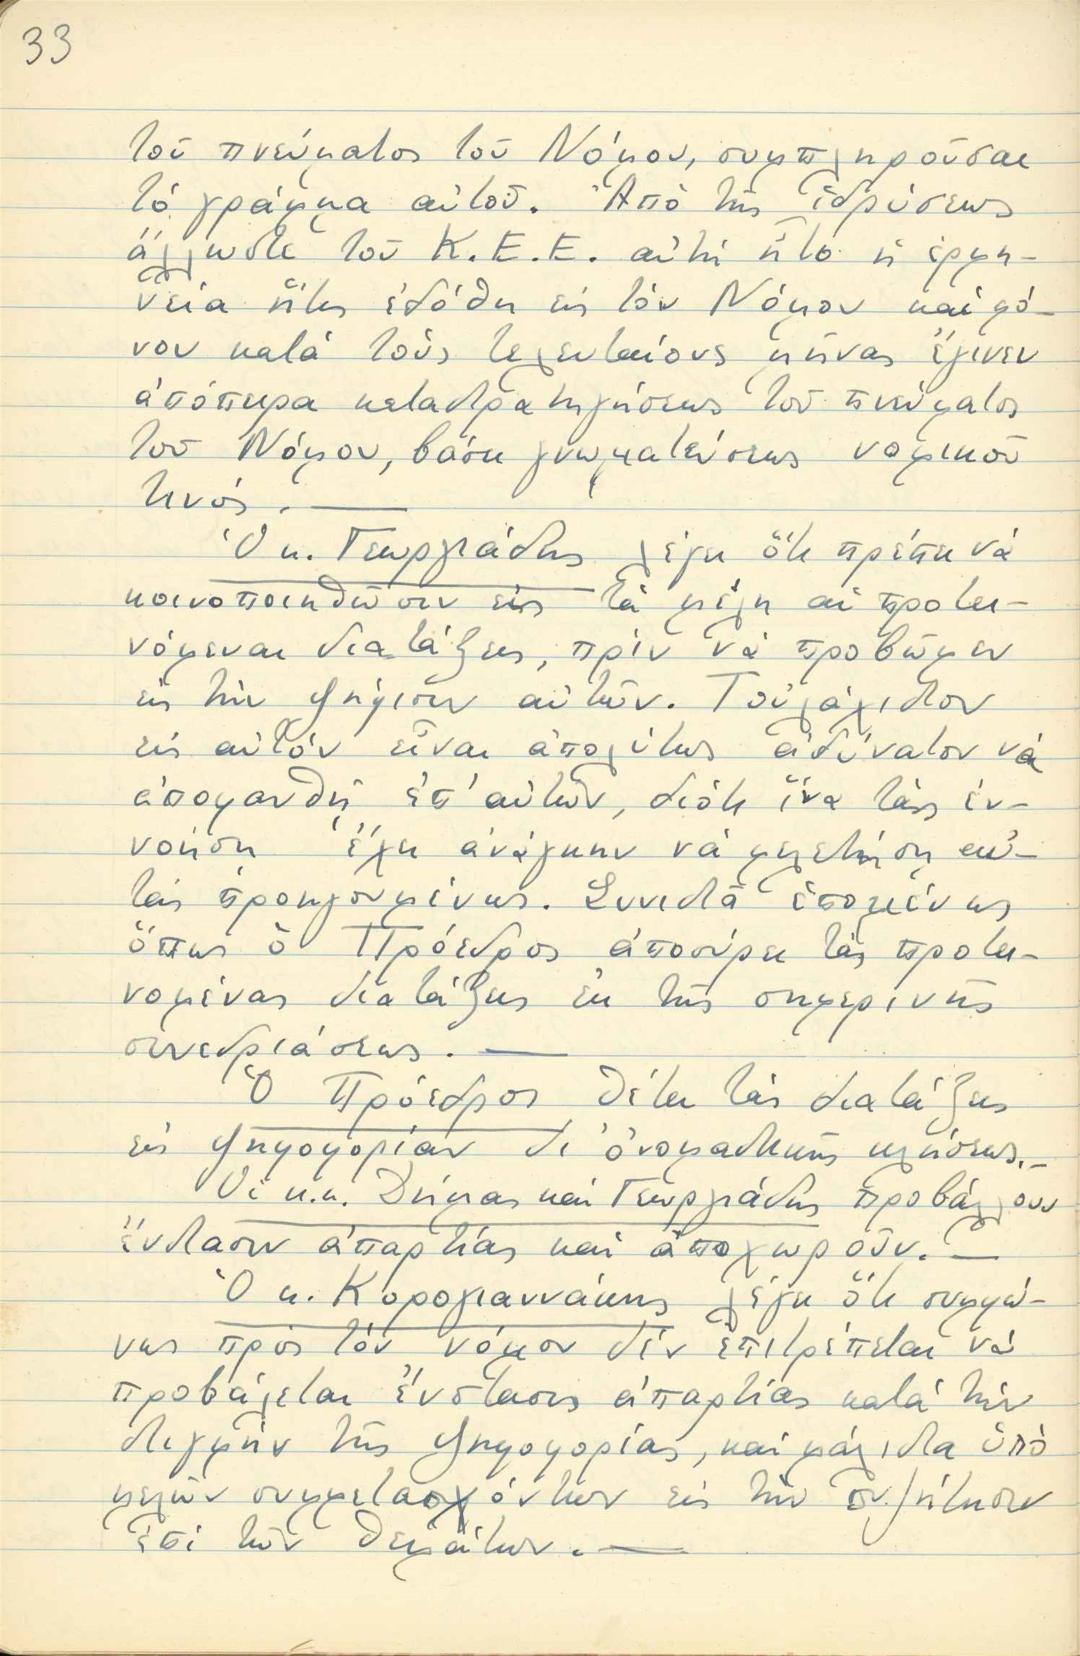 33
τοῦ πνεύματος τοῦ Νόμου, συμπληροῦσαι
τό γράμμα αὐτοῦ. Ἀπό τῆς ἱδρύσεως
ἄλλωστε τοῦ Κ.Ε.Ε. αὐτή ἦτο ἡ ἑρμη-
νεία ἥτις ἐδόθη εἰς τόν Νόμον καί μό-
νον κατά τούς τελευταίους μῆνας ἔγινεν
ἀπόπειρα καταστρατηγήσεως τοῦ πνεύματος
τοῦ Νόμου, βάσει γνωματεύσεως νομικοῦ
τινός. —
Ὁ κ. Γεωργιάδης λέγει ὅτι πρέπει νά
κοινοποιηθῶσιν εἰς τά μέλη αἱ προτει-
νόμεναι διατάξεις, πρίν νά προβῶμεν
εἰς τήν ψήφισιν αὐτῶν. Τοὐλάχιστον
εἰς αὐτόν εἶναι ἀπολύτως ἀδύνατον νά
ἀποφανθῇ ἐπ' αὐτῶν, διότι ἵνα τάς ἐν-
νοήσῃ ἔχει ἀνάγκην νά μελετήσῃ αὐ-
τάς προηγουμένως. Συνιστᾶ ἑπομένως
ὅπως ὁ Πρόεδρος ἀποσύρει τάς προτει-
νομένας διατάξεις ἐκ τῆς σημερινῆς
συνεδριάσεως. —
Ὁ Πρόεδρος θέτει τάς διατάξεις
εἰς ψηφοφορίαν δι' ὀνομαστικῆς κλήσεως.-
Οἱ κ.κ. Δήμας καί Γεωργιάδης προβάλλουν
ἔνστασιν ἀπαρτίας καί ἀποχωροῦν. —
Ὁ κ. Κορογιαννάκης λέγει ὅτι συμφώ-
νως πρός τόν νόμον δέν ἐπιτρέπεται νά
προβάλεται ἔνστασις ἀπαρτίας κατά τήν
στιγμήν τῆς ψηφοφορίας, καί μάλιστα ὑπό
μελῶν συμμετασχόντων εἰς τήν συζήτησιν
ἐπί τῶν θεμάτων. —